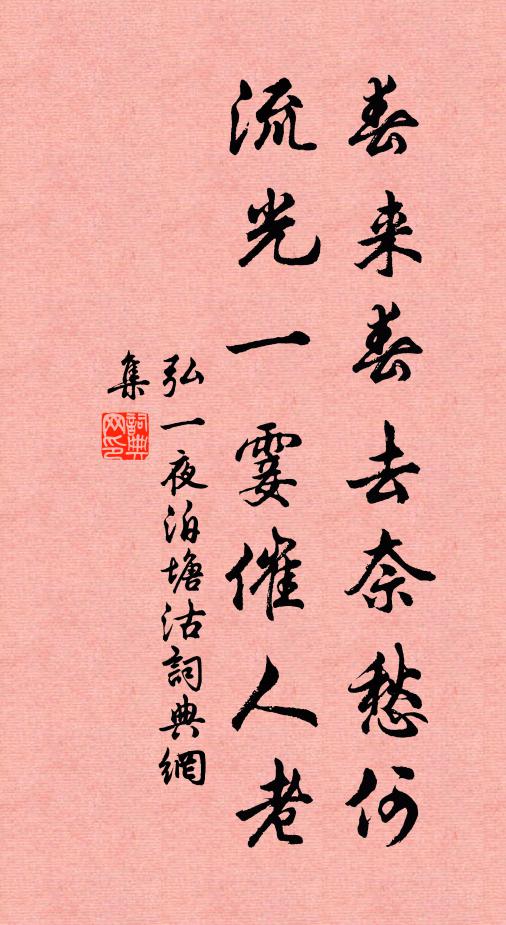 春来春去奈愁何
流光一霎催人老
弘一夜泊塘沽詞典網
集
詞典網印